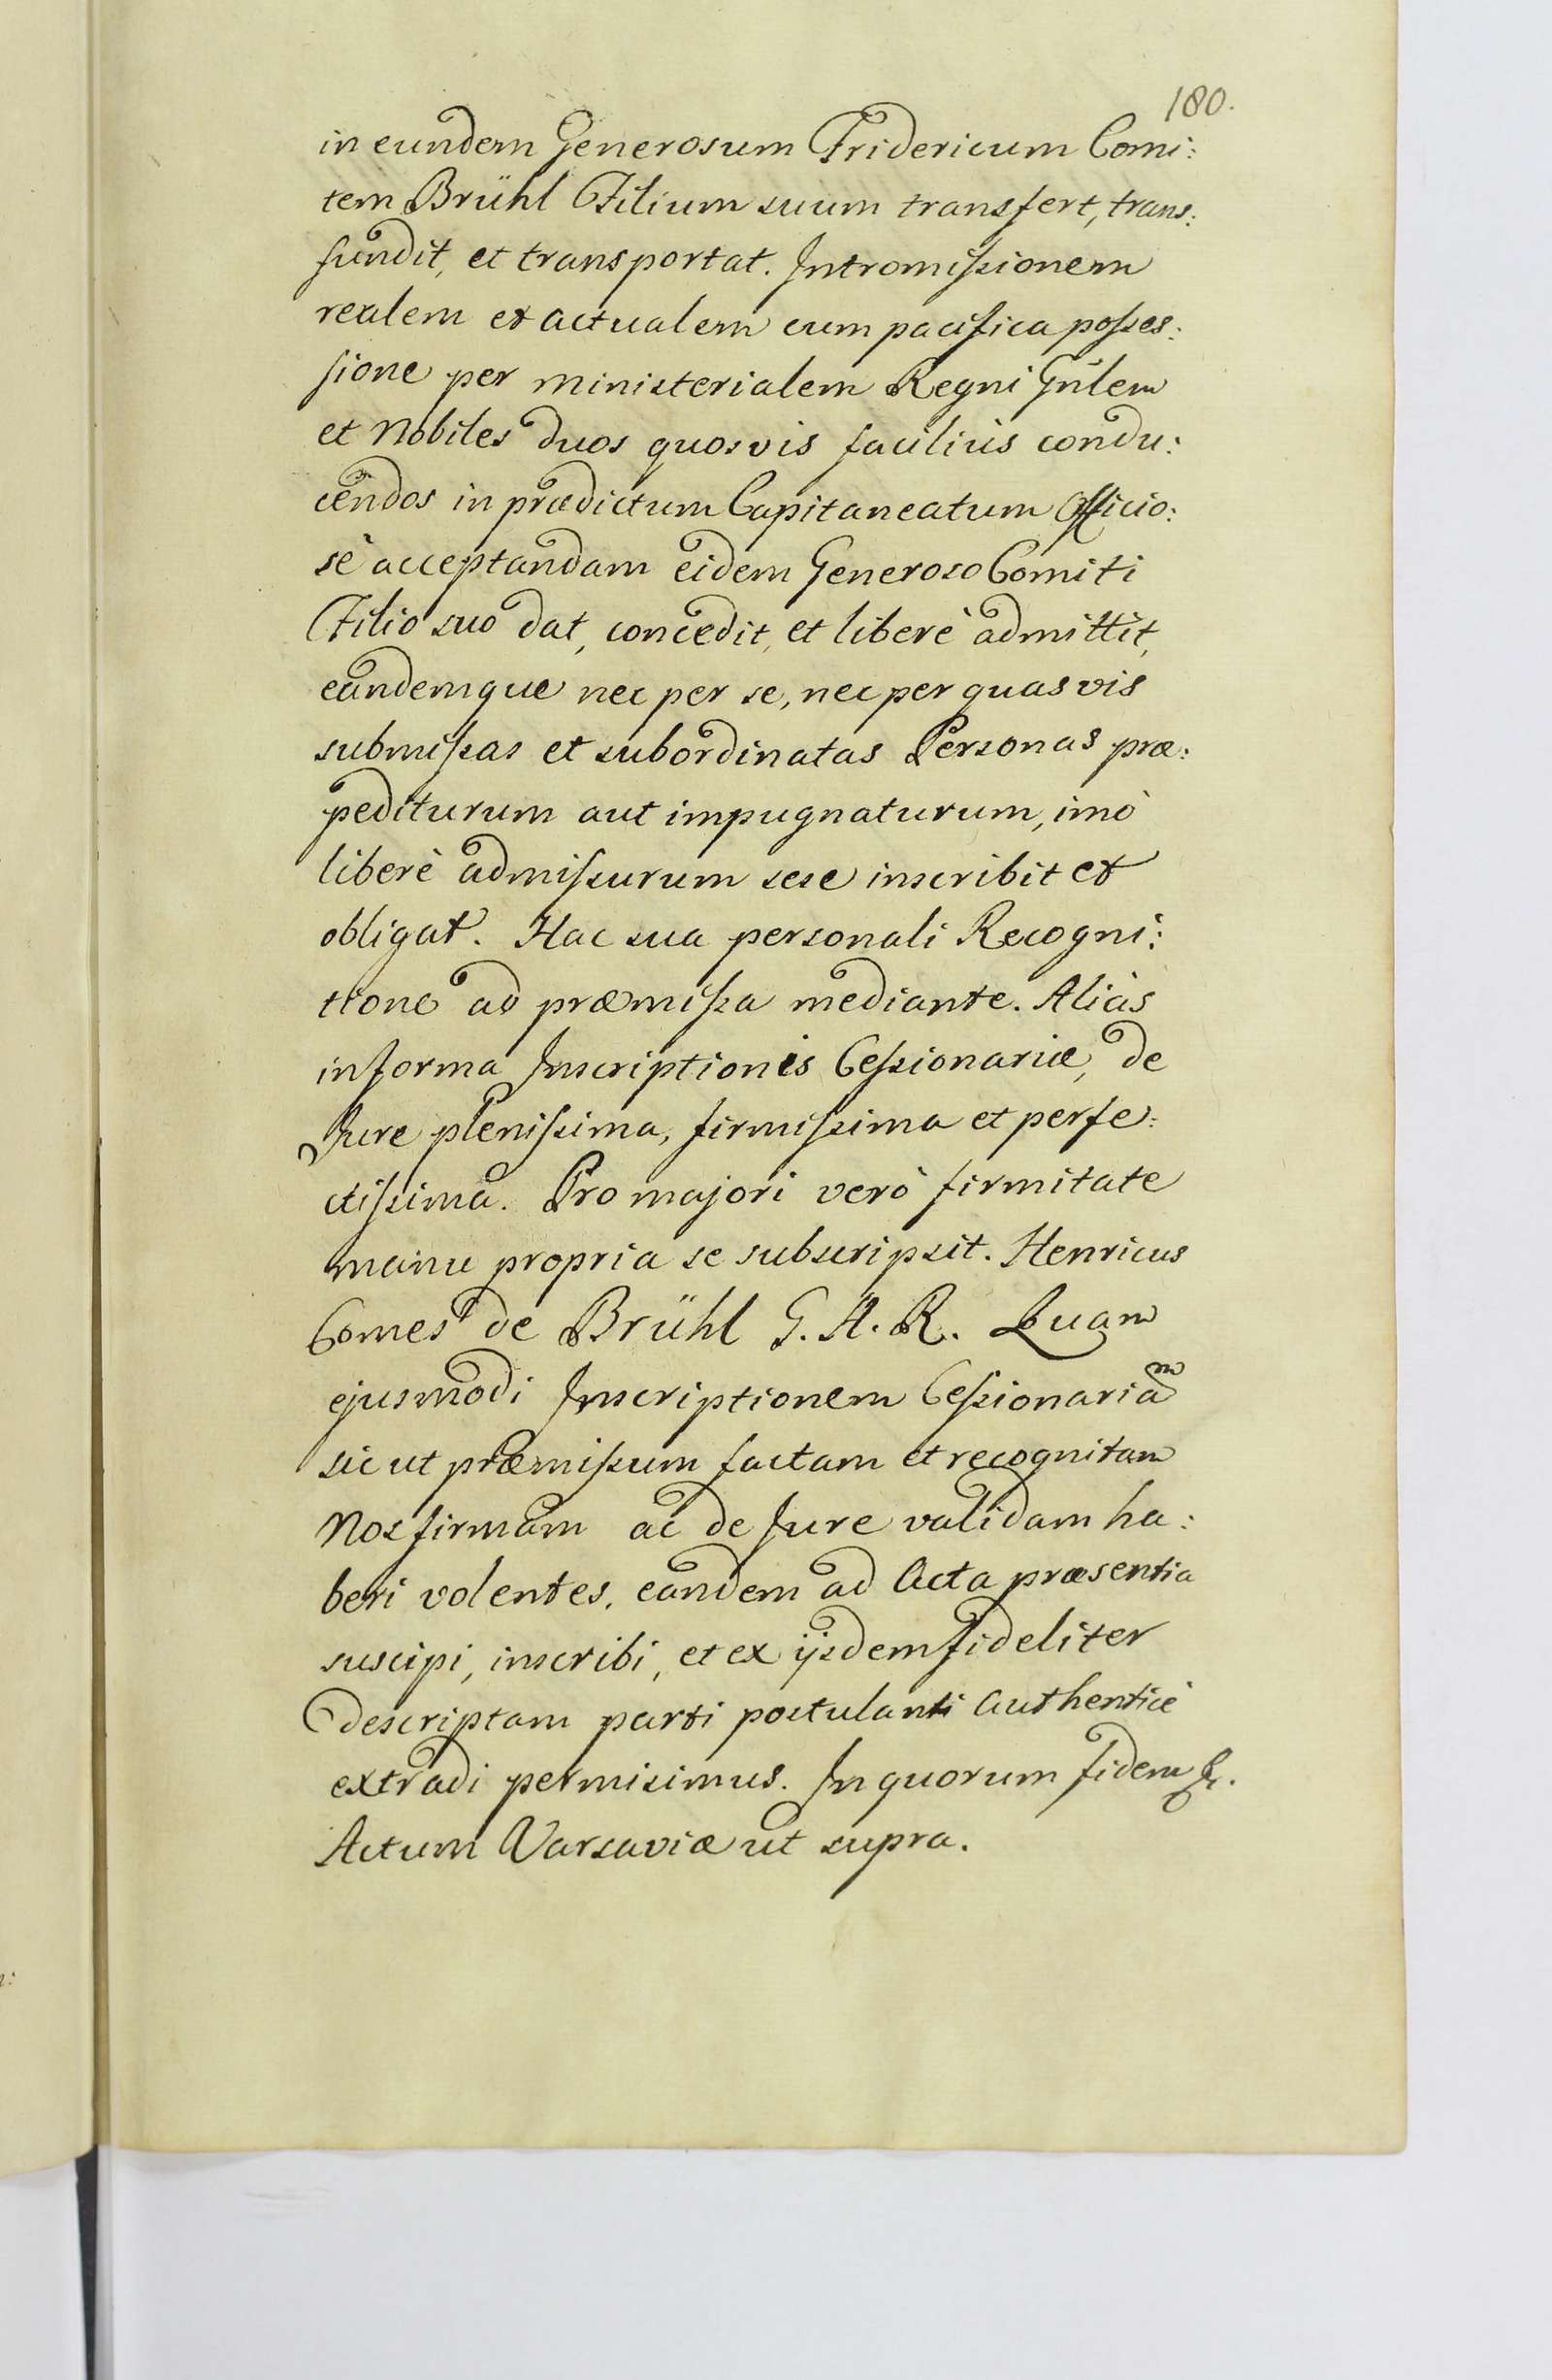 180.
in eundem Generosum Fridericum Comi:
tem Brühl Filium suum transfert, trans:
fundit, et transportat. Intromissionem
realem et actualem cum pacifica posses:
sione per ministerialem Regni Gnlem
et Nobiles duos quosvis faciliùs condu:
cendos in prædictum Capitaneatum Officio:
sè acceptandam eidem Generoso Comiti
Filio suo dat, concedit, et liberè admittit,
eandemque nec per se, nec per quasvis
submissas et subordinatas Personas præ:
pediturum aut impugnaturum, imò
liberè admissurum sese inscribit et
obligat. Hac sua personali Recogni:
tione ad præmissa mediante. Aliàs
in forma Inscriptionis Cessionariæ, de
Jure plenissima, firmissima et perfe:
ctissima. Pro majori verò firmitate
manu propria se subscripsit. Henricus
Comes de Brühl G. A. R. Quam
ejusmodi Inscriptionem Cessionariam
sicut præmissum factam et recognitam
Nos firmam ac de Jure validam ha:
beri volentes, eandem ad Acta præsentia
suscipi, inscribi, et ex ijsdem fideliter
descriptam parti postulanti authenticè
extradi permisimus. In quorum fidem &.
Actum Varsaviæ ut supra.